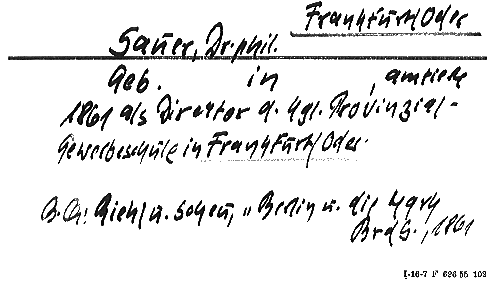 Frankfurt/Oder
Sauer, Dr. phil.
Geb. in , amtierte
1861 als Direktor d. Kgl. Provinzial-
Gewerbeschule in Frankfurt/Oder.
B.A.: Riehl u. Scheu, "Berlin u. die Mark
Brdbg., 1861
I-16-7 F 626 55 103